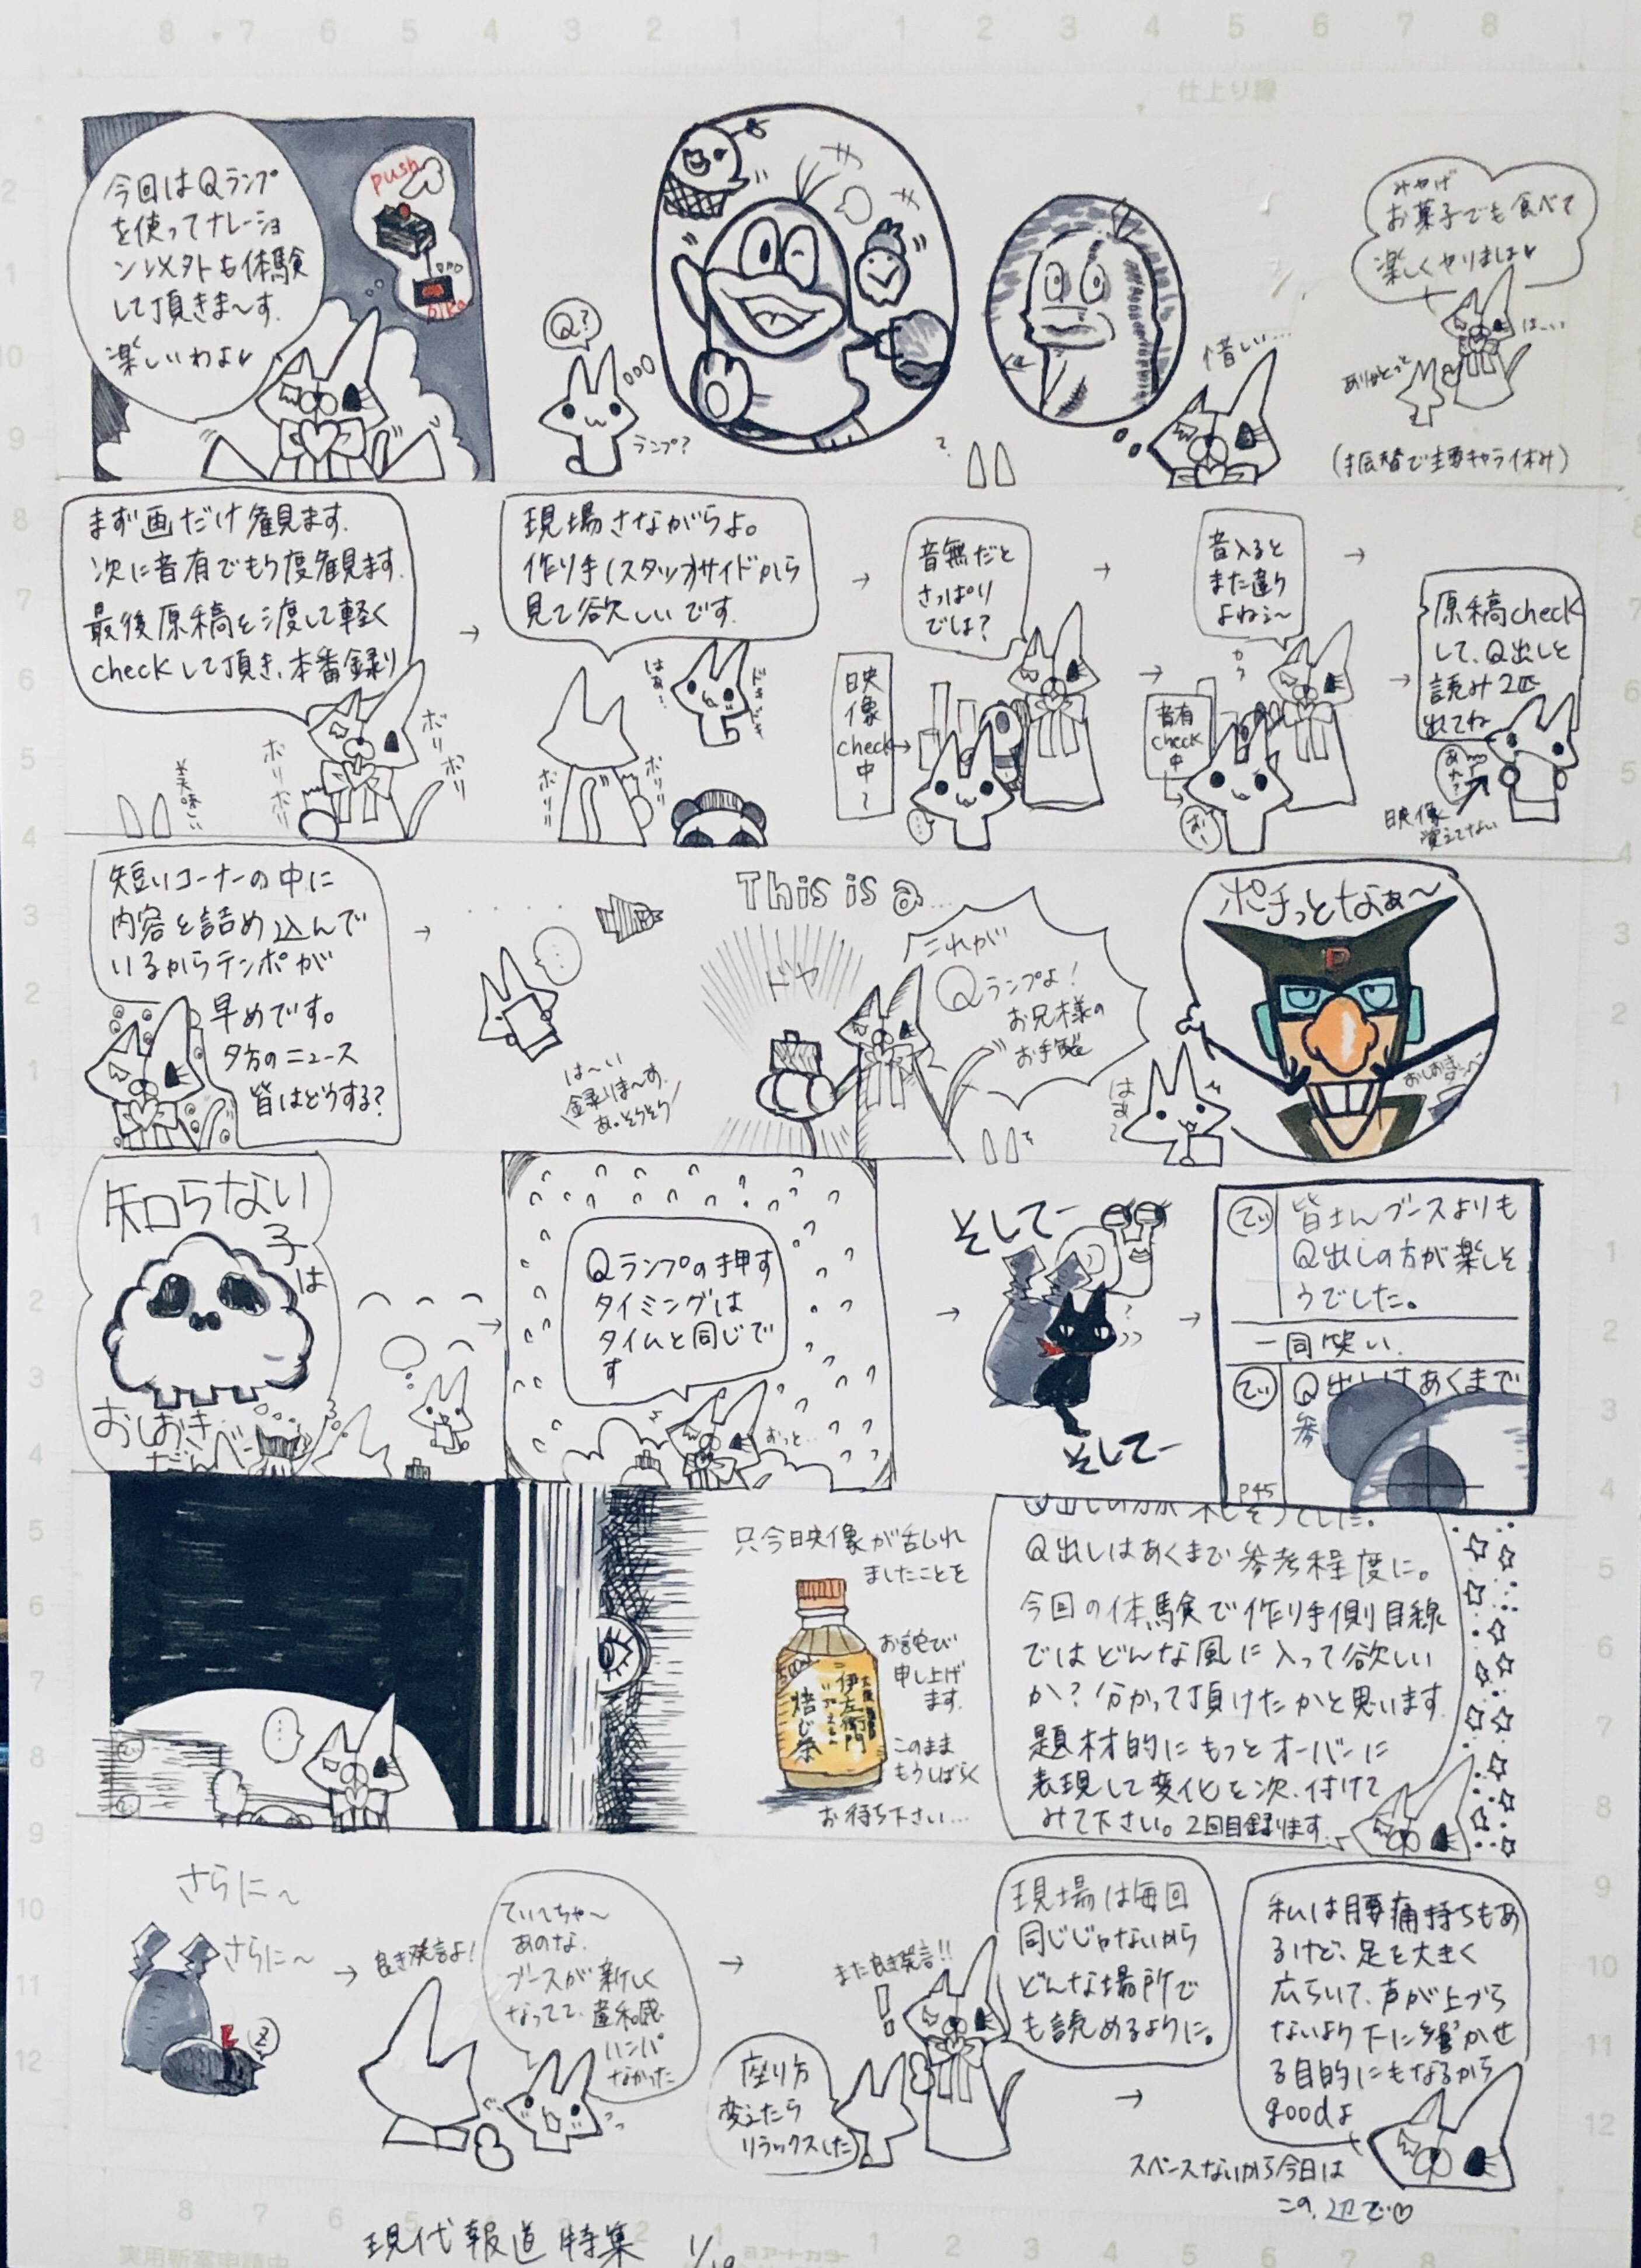 今回はQランプ
を使ってナレーショ
ン以外も体験
して頂きま〜す.
楽しいわよ♥
push
pika
Q?
ランプ?
キ
キ
惜しい…
みやげ
お菓子でも食べて
楽しくやりましょ♥
は〜い
ありがとっと
(振替で主要キャラ休み)
まず画だけ観ます.
次に音有でもう1度観ます.
最後原稿を渡して軽く
checkして頂き、本番録り
ポリポリ
ポリポリ
美味しい
→
現場さながらよ。
作り手(スタッフ)サイドから
見て欲しいです.
はぁ〜
ドキドキ
ポリリ
ポリリ
→
音無だと
さっぱり
でしょ?
映像
check
中〜
→
音入ると
また違う
よねぇ〜
音有
check
中
お!
→
原稿check
して、Q出しと
読み2匹
出てね
映像
覚えてない
短いコーナーの中に
内容を詰め込んで
いるからテンポが
早めです。
夕方のニュース
皆はどうする?
→
・・・・・
…
は〜い
録りま〜す.
あ、そうそう
This is a…
ドヤ
これが
Qランプよ!
お兄様の
お手製
はぁ〜
ポチっとなぁ〜
D
おしおき
知らない
子は
おしおき
だべ〜
→
Qランプの押す
タイミングは
タイムと同じで
す
おっと…
→
そしてー
そしてー
→
てぃ
皆さんブースよりも
Q出しの方が楽しそ
うでした。
一同笑い.
てぃ
Q出しはあくまで
参
P45
…
只今映像が乱れ
ましたことを
お詫び
申し上げ
ます.
このまま
もうしばらく
お待ち下さい…
500ml
伊左衛門
焙じ茶
Q出しはあくまで参考程度に。
今回の体験で作り手側目線
ではどんな風に入って欲しい
か?分かって頂けたかと思います.
題材的にもっとオーバーに
表現して変化を次、付けて
みて下さい。2回目録ります.
さらに〜
さらに〜
Z
→
良き発言よ!
てぃてちゃ〜
あのな.
ブースが新しく
なってて、違和感
ハンパ
なかった
→
また良き発言!!
座り方
変えたら
リラックスした
現場は毎回
同じじゃないから
どんな場所で
も読めるように。
→
私は腰痛持ちもあ
るけど、足を大きく
広らいて、声が上づら
ないより下に響かせ
る目的にもなるから
goodよ
スペースないから今日は
この辺で♡
現代報道特集